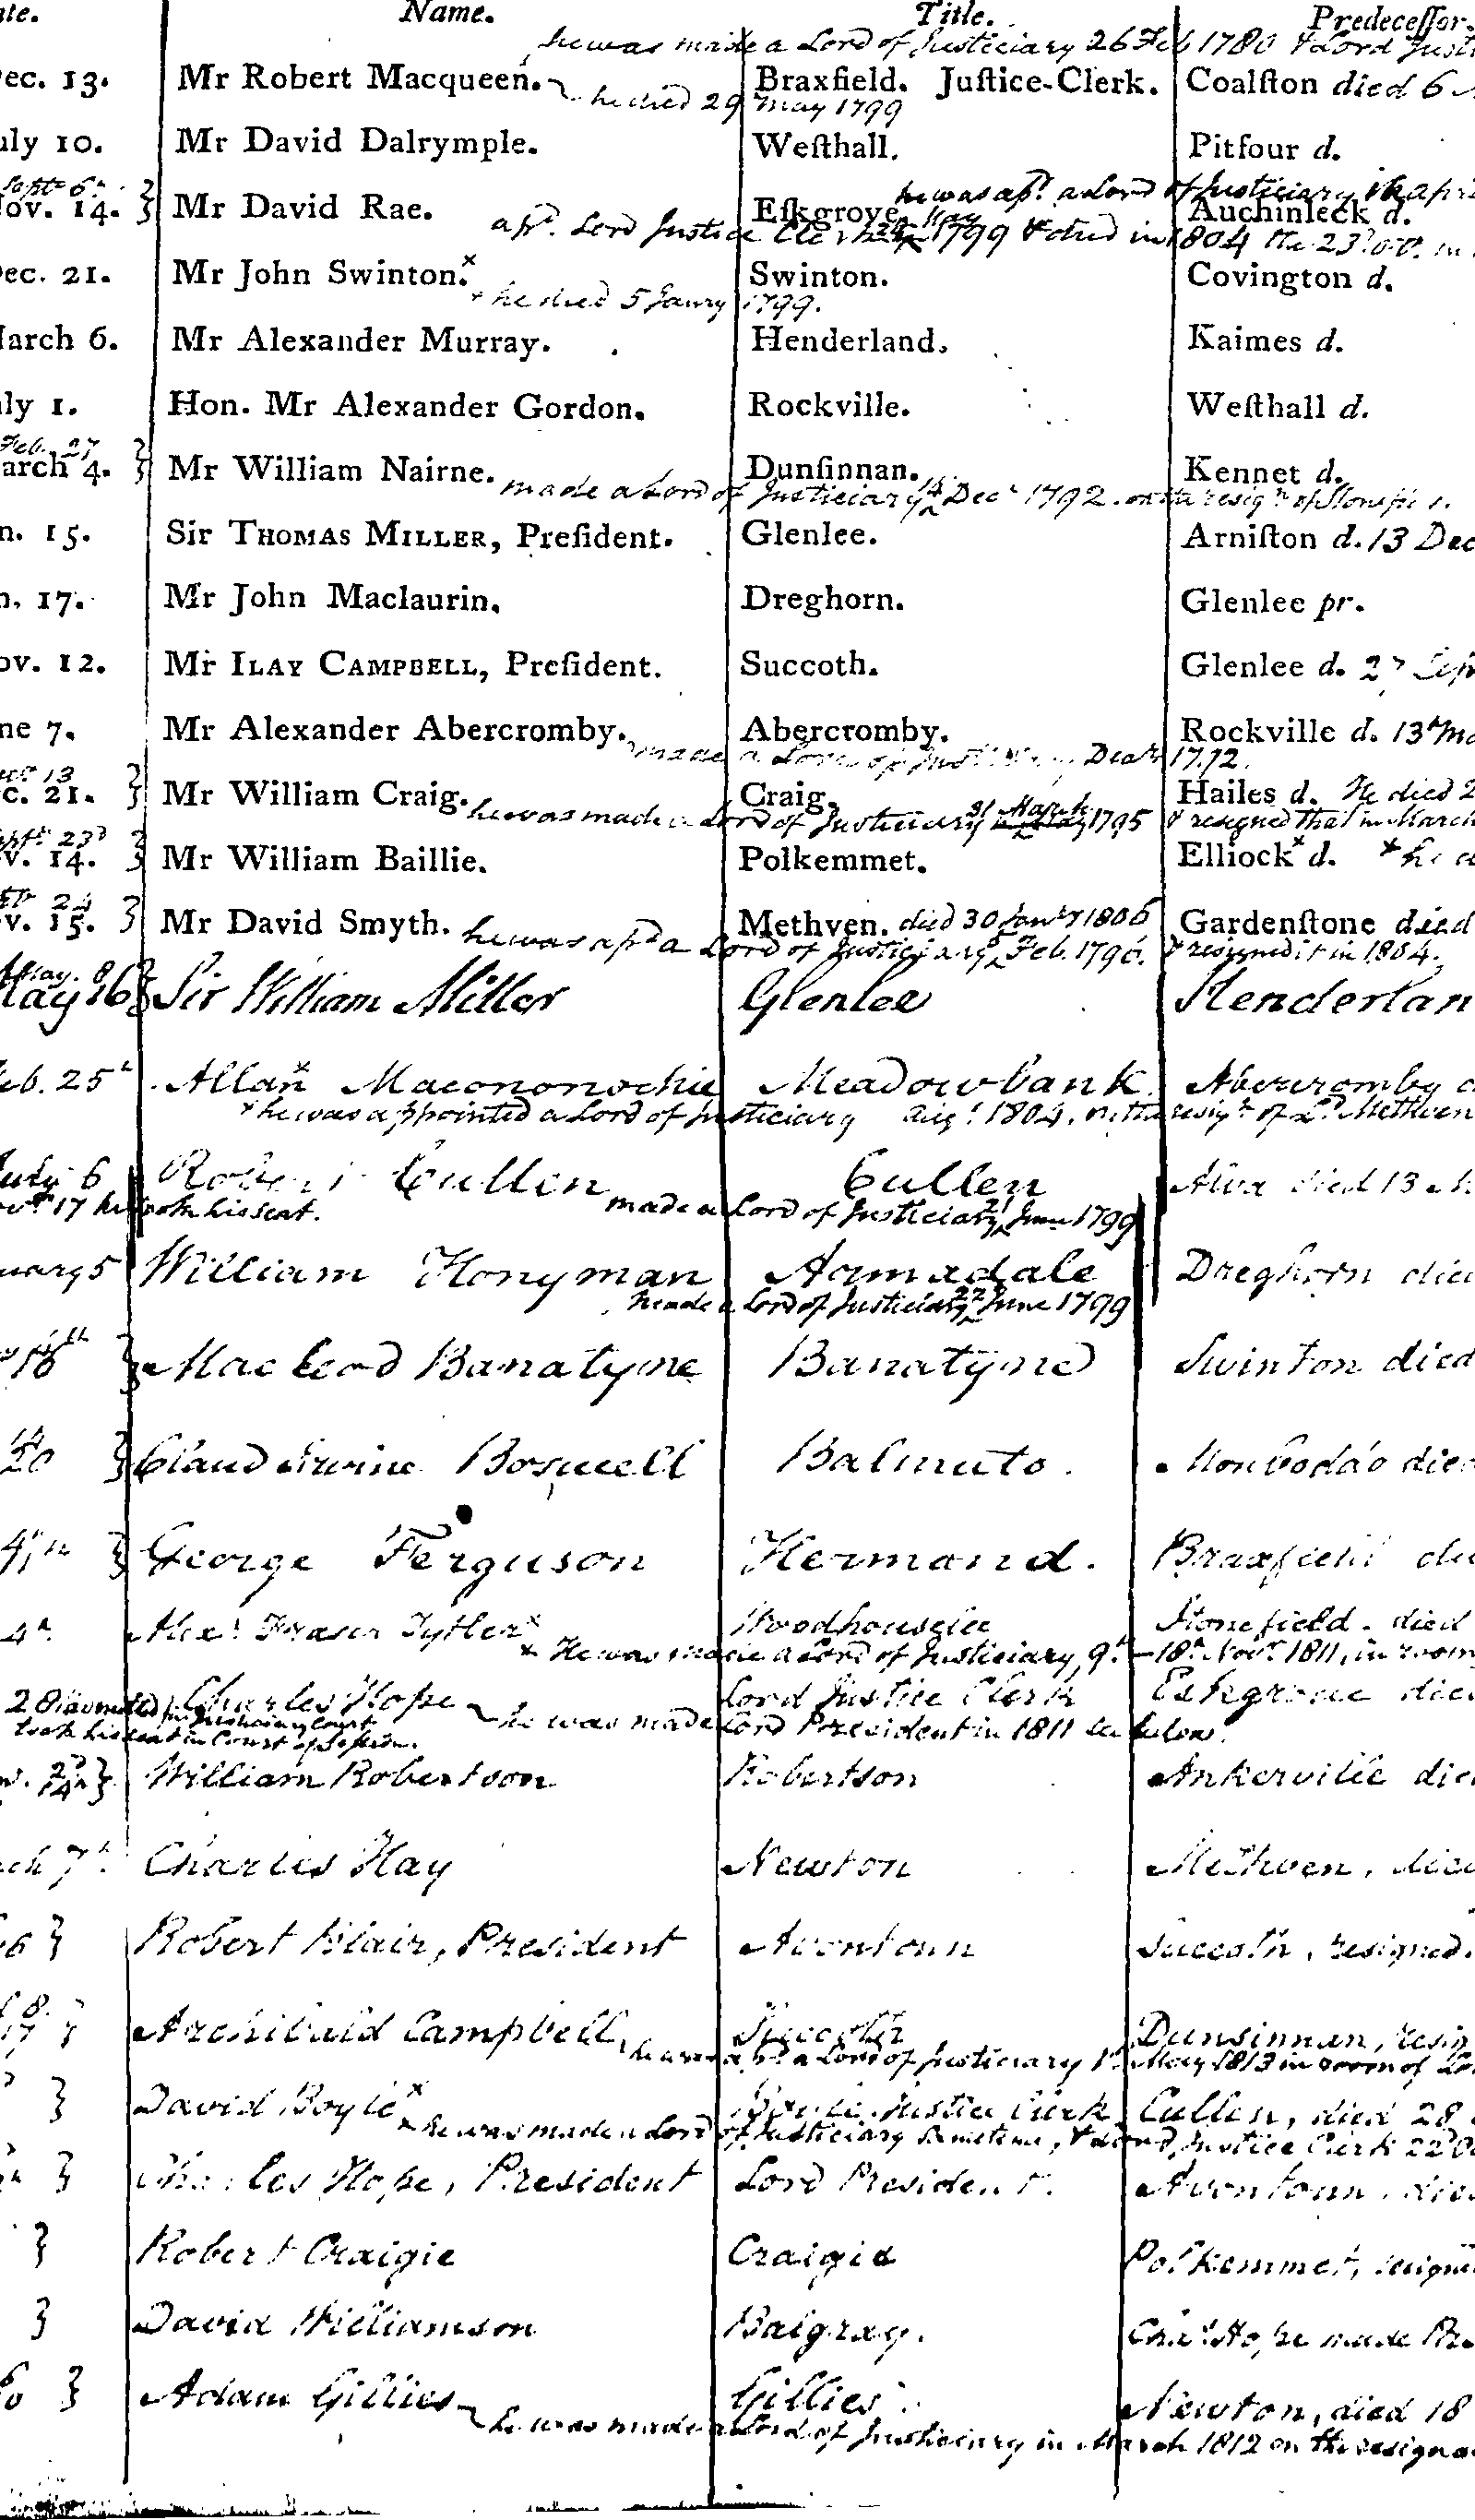 ate. Name. Title. Predeceſſor.
he was made a Lord of Justiciary 26 Feb 1780 & Lord Justi
ec. 13. Mr Robert Macqueen. Braxfield. Juſtice-Clerk. Coalſton died 6
he died 29 May 1799
uly 10. Mr David Dalrymple. Weſthall. Pitfour d.
Sept 6 he was apd. a Lord of Justiciary apri
ov. 14. } Mr David Rae. Eſkgrove. Auchinleck d.
apd. Lord Justice Clerk 1799 & died in 1804 the 23d. oct. in
ec. 21. Mr John Swinton.x Swinton. Covington d.
x he died 5 Janry 1799.
arch 6. Mr Alexander Murray. Henderland. Kaimes d.
uly 1. Hon. Mr Alexander Gordon. Rockville. Weſthall d.
Feb. 27
arch 4. } Mr William Nairne. Dunſinnan. Kennet d.
made a Lord of Justiciary 14 Decr 1792. on the resign. of Stonefi
n. 15. Sir THOMAS MILLER, Preſident. Glenlee. Arniſton d. 13 Dec
n. 17. Mr John Maclaurin. Dreghorn. Glenlee pr.
ov. 12. Mr ILAY CAMPBELL, Preſident. Succoth. Glenlee d. 27 Sep
ne 7. Mr Alexander Abercromby. Abercromby. Rockville d. 13th Ma
made a Lord of Justiciary Decr 1792.
13
c. 21. } Mr William Craig. Craig. Hailes d. He died 2
he was made a Lord of Justiciary 31 March 1795 & resigned that in March
Sept. 23d
v. 14. } Mr William Baillie. Polkemmet. Elliockx d. x he d
24
v. 15. } Mr David Smyth. Methven. died 30 Janry 1806 Gardenſtone died
he was apd a Lord of Justiciary 5 Feb. 1796. & resigned it in 1804.
May. 8
May 16 } Sir William Miller Glenlee Henderlan
eb. 25th. Allanx Maconochie Meadowbank Abercromby d
x he was appointed a Lord of Justiciary Augt. 1804. on the resign. of Ld. Methven
July 6 Robert Cullen Cullen Alva died 13
17 he took his seat. made a Lord of Justiciary 21 June 1799
uary 5 William Honyman Armadale Dreghorn died
made a Lord of Justiciary 27 June 1799
16th } Macleod Banatyne Banatyne Swinton died
14
20 } Claud Irvine Boswell Balmuto. Monboddo died
4th } George Ferguson Hermand. Braxfield die
4th. Alexr. Fraser Tytlerx Woodhouselee Stonefield. died
x He was made a Lord of Justiciary, 9th.–18th. Novr. 1811, in room
Charles Hope Lord Justice Clerk Eskgrove died
28 in Justiciary Court he was made Lord President in 1811 see below.
took his seat in Court of Session.
v. 14 } William Robertson Robertson Ankerville die
ch 7th. Charles Hay Newton Methven, died
6 } Robert Blair, President Avontoun Succoth, resigned.
8.
17 } Archibald Campbell, Succoth Dunsinnan, resig
he was apd. a Lord of Justiciary 1st. May 1813 in room of Lo
} David Boylex Boyle. Justice Clerk Cullen, died 28
x he was made a Lord of Justiciary sametime, & Lord Justice Clerk 22d O
} Charles Hope, President Lord President. Avontoun, die
} Robert Craigie Craigie Polkemmet, resign
} David Williamson Balgray. Chas. Hope made Pre
} Adam Gillies Gillies. Newton, died 18
he was made a Lord of Justiciary in March 1812 on the resigna